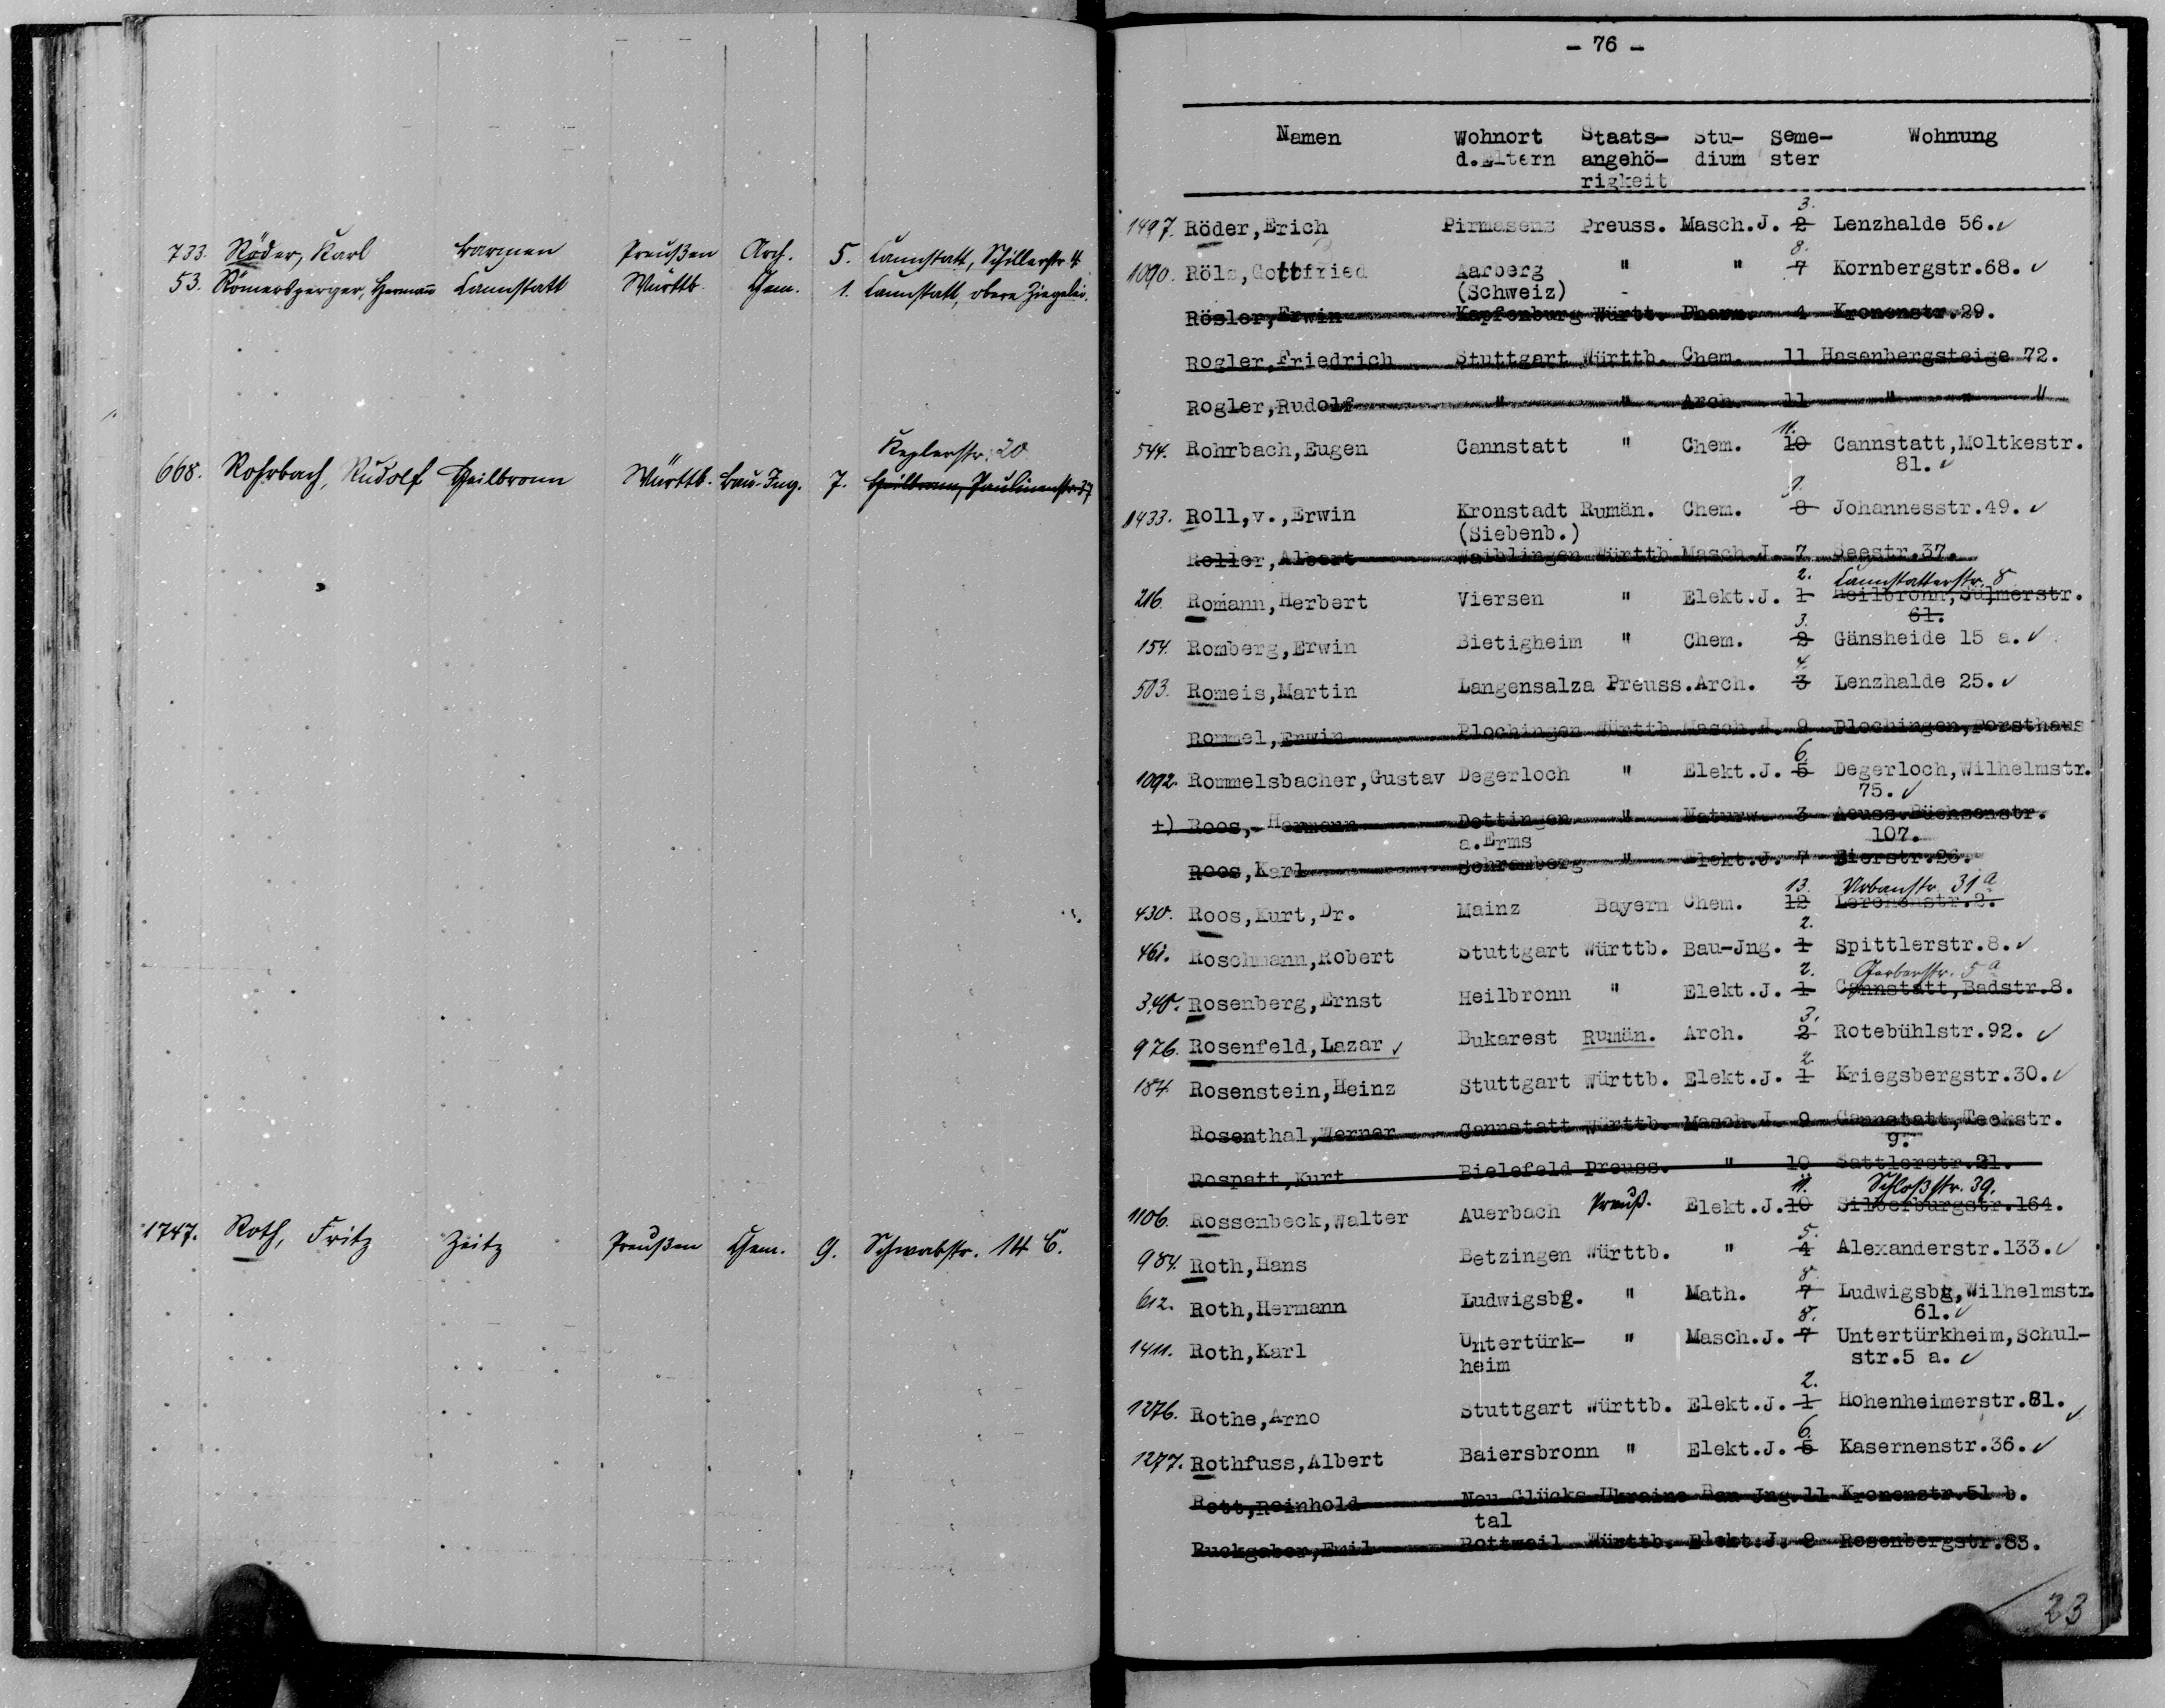 733. Röder, Karl Barmen Preußen Arch. 5. Cannstatt, Schillerstr. 4
53. Römersperger, Hermann Cannstatt Württb. Chem. 1. Cannstatt, obere Ziegelei.
Keplerstr. 20
668. Rohrbach, Rudolf Heilbronn Württb. Bau-Ing. 7. Heilbronn, Paulinenstr. 37
1747. Roth, Fritz Zeitz Preußen Chem. 9. Schwabstr. 14 C.
- 76 -
Namen Wohnort Staats- Stu- Seme- Wohnung
d.Eltern angehö- dium ster
rigkeit
3.
1497. Röder,Erich Pirmasenz Preuss. Masch.J. 2 Lenzhalde 56.✓
8.
1090. Röls,Gottfried Aarberg " " 7 Kornbergstr.68. ✓
(Schweiz) -
Rösler,Erwin Kapfenburg Württ. Pharm. 4 Kronenstr.29.
Rogler,Friedrich Stuttgart Württb. Chem. 11 Hasenbergsteige 72.
Rogler,Rudolf " " Arch. 11 " " "
11.
544. Rohrbach,Eugen Cannstatt " Chem. 10 Cannstatt,Moltkestr.
81. ✓
9.
1433. Roll,v.,Erwin Kronstadt Rumän. Chem. 8 Johannesstr.49. ✓
(Siebenb.)
Roller,Albert Waiblingen Württb Masch.J. 7 Seestr.37.
2. Cannstatterstr. 8
216. Romann,Herbert Viersen " Elekt.J. 1 Heilbronn,Sülmerstr.
61.
3.
154. Romberg,Erwin Bietigheim " Chem. 2 Gänsheide 15 a. ✓
4.
503. Romeis,Martin Langensalza Preuss.Arch. 3 Lenzhalde 25. ✓
Rommel,Erwin Plochingen Württb Masch.J. 9 Plochingen,Forsthaus
6.
1092. Rommelsbacher,Gustav Degerloch " Elekt.J. 5 Degerloch,Wilhelmstr.
75. ✓
+) Roos,-Hermann Dettingen " Naturw. 3 Aeuss.Büchsenstr.
a.Erms 107.
Roos,Karl Schramberg " Elekt.J. 7 Eierstr.26.
13. Urbanstr. 31 a
430. Roos,Kurt,Dr. Mainz Bayern Chem. 12 Lerchenstr.2.
2.
461. Roschmann,Robert Stuttgart Württb. Bau-Jng. 1 Spittlerstr.8. ✓
2. Gerberstr. 5 a
340. Rosenberg,Ernst Heilbronn " Elekt.J. 1 Cannstatt,Badstr.8.
3.
976. Rosenfeld,Lazar ✓ Bukarest Rumän. Arch. 2 Rotebühlstr.92. ✓
2.
184 Rosenstein,Heinz Stuttgart Württb. Elekt.J. 1 Kriegsbergstr.30. ✓
Rosenthal,Werner Cannstatt Württb. Masch.J. 9 Cannstatt,Teckstr.
9.
Rospatt,Kurt Bielefeld Preuss. " 10 Sattlerstr.21.
11. Schloßstr. 39.
1106. Rossenbeck,Walter Auerbach Preuß. Elekt.J.10 Silberburgstr.164.
5.
984. Roth,Hans Betzingen Württb. " 4 Alexanderstr.133. ✓
8.
612. Roth,Hermann Ludwigsbg. " Math. 7 Ludwigsbg,Wilhelmstr.
61. ✓
8.
1411. Roth,Karl Untertürk- " Masch.J. 7 Untertürkheim,Schul-
heim str.5 a. ✓
2.
1276. Rothe,Arno Stuttgart Württb. Elekt.J. 1 Hohenheimerstr.81. ✓
6.
1277. Rothfuss,Albert Baiersbronn " Elekt.J. 5 Kasernenstr.36. ✓
Rott,Reinhold Neu Glücks- Ukraine Bau Jng. 11 Kronenstr.51 b.
tal
Ruckgaber,Emil Rottweil Württb. Elekt.J. 9 Rosenbergstr.83.
23